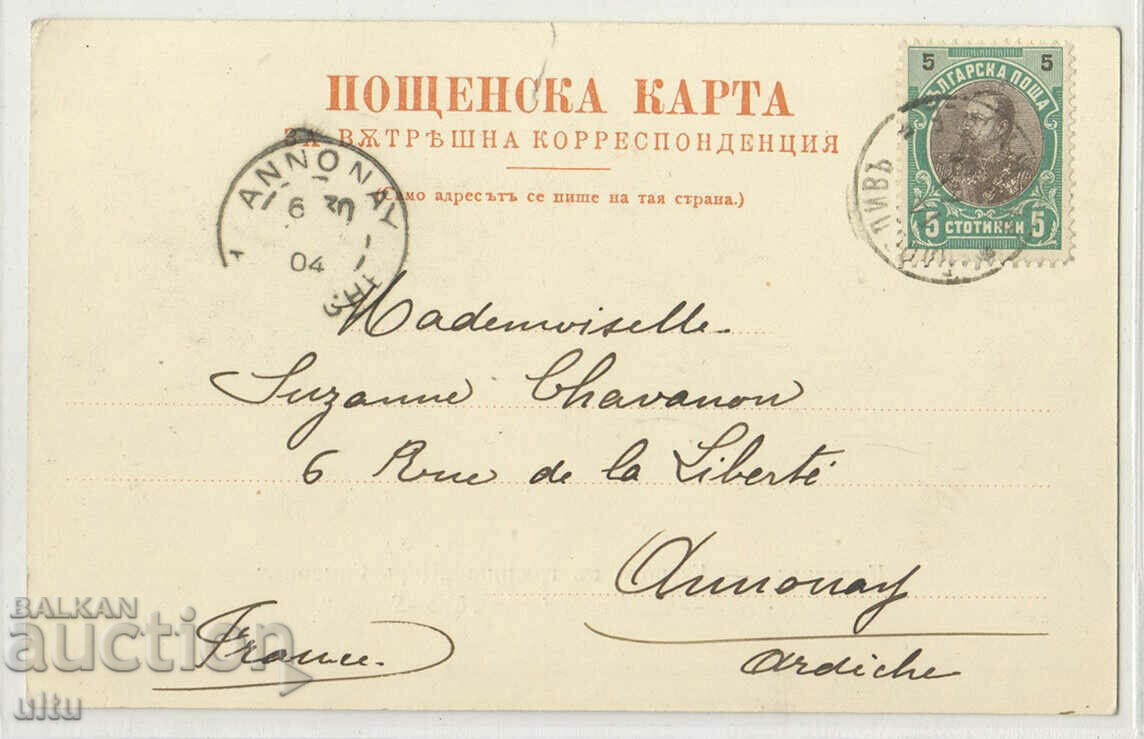 ПОЩЕНСКА КАРТА
ЗА ВѪТРѢШНА КОРРЕСПОНДЕНЦИЯ
(Само адресътъ се пише на тая страна.)
5 5
БЪЛГАРСКА ПОЩА
5 СТОТИНКИ 5
ANNONAY
6 5
04
Mademoiselle
Suzanne Chavanon
6 Rue de la Liberté
Annonay
Ardèche
France
BALKAN
auction
ultu